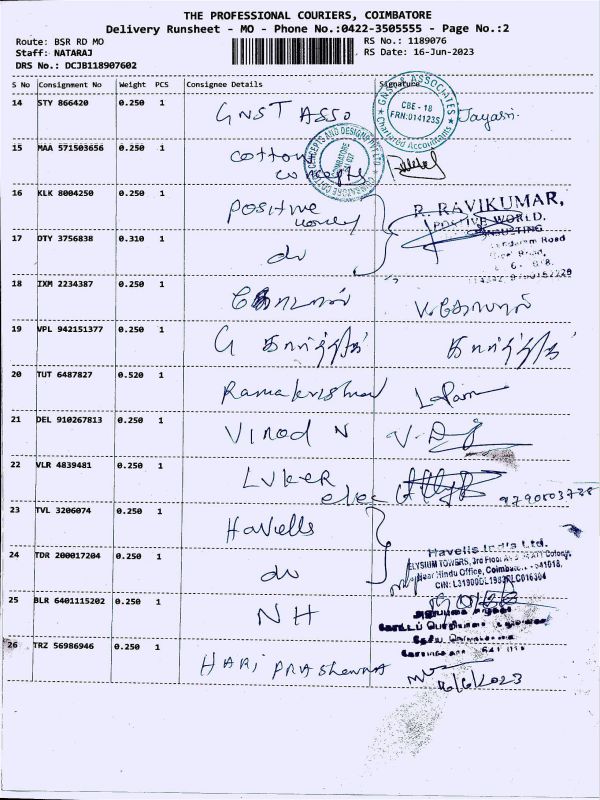 THE PROFESSIONAL COURIERS, COIMBATORE
Delivery Runsheet - MO - Phone No.:0422-3505555 - Page No.:2
Route: BSR RD MO
RS No.: 1189076
Staff: NATARAJ
RS Date: 16-Jun-2023
DRS No.: DCJB118907602
S No Consignment No Weight PCS Consignee Details Signature
14 STY 866420 0.250 1 GNST ASSO Jayasri
GNST & ASSOCIATES
CBE - 18
FRN:014123S
Chartered Accountants
15 MAA 571503656 0.250 1 cotton
concepts
16 KLK 8004250 0.250 1 Positive
money
R. RAVIKUMAR,
POSITIVE WORLD.
CONSULTING
Road
17 OTY 3756838 0.310 1 do
18 IXM 2234387 0.250 1 கோபால் V. கோபால்
19 VPL 942151377 0.250 1 G கார்த்திக் கார்த்திக்
20 TUT 6487827 0.520 1 Ramakrishnan
21 DEL 910267813 0.250 1 Vinod N
22 VLR 4839481 0.250 1 LUKER
elec
9790603728
23 TVL 3206074 0.250 1 Havells
Havells India Ltd.
ELYSIUM TOWERS, 3rd Floor Colony,
Near Hindu Office, Coimbatore - 641018.
CIN: L31900DL1983PLC016304
24 TDR 200017204 0.250 1 do
25 BLR 6401115202 0.250 1 NH
26 TRZ 56986946 0.250 1 HARi PRAShanna
16/6/2023